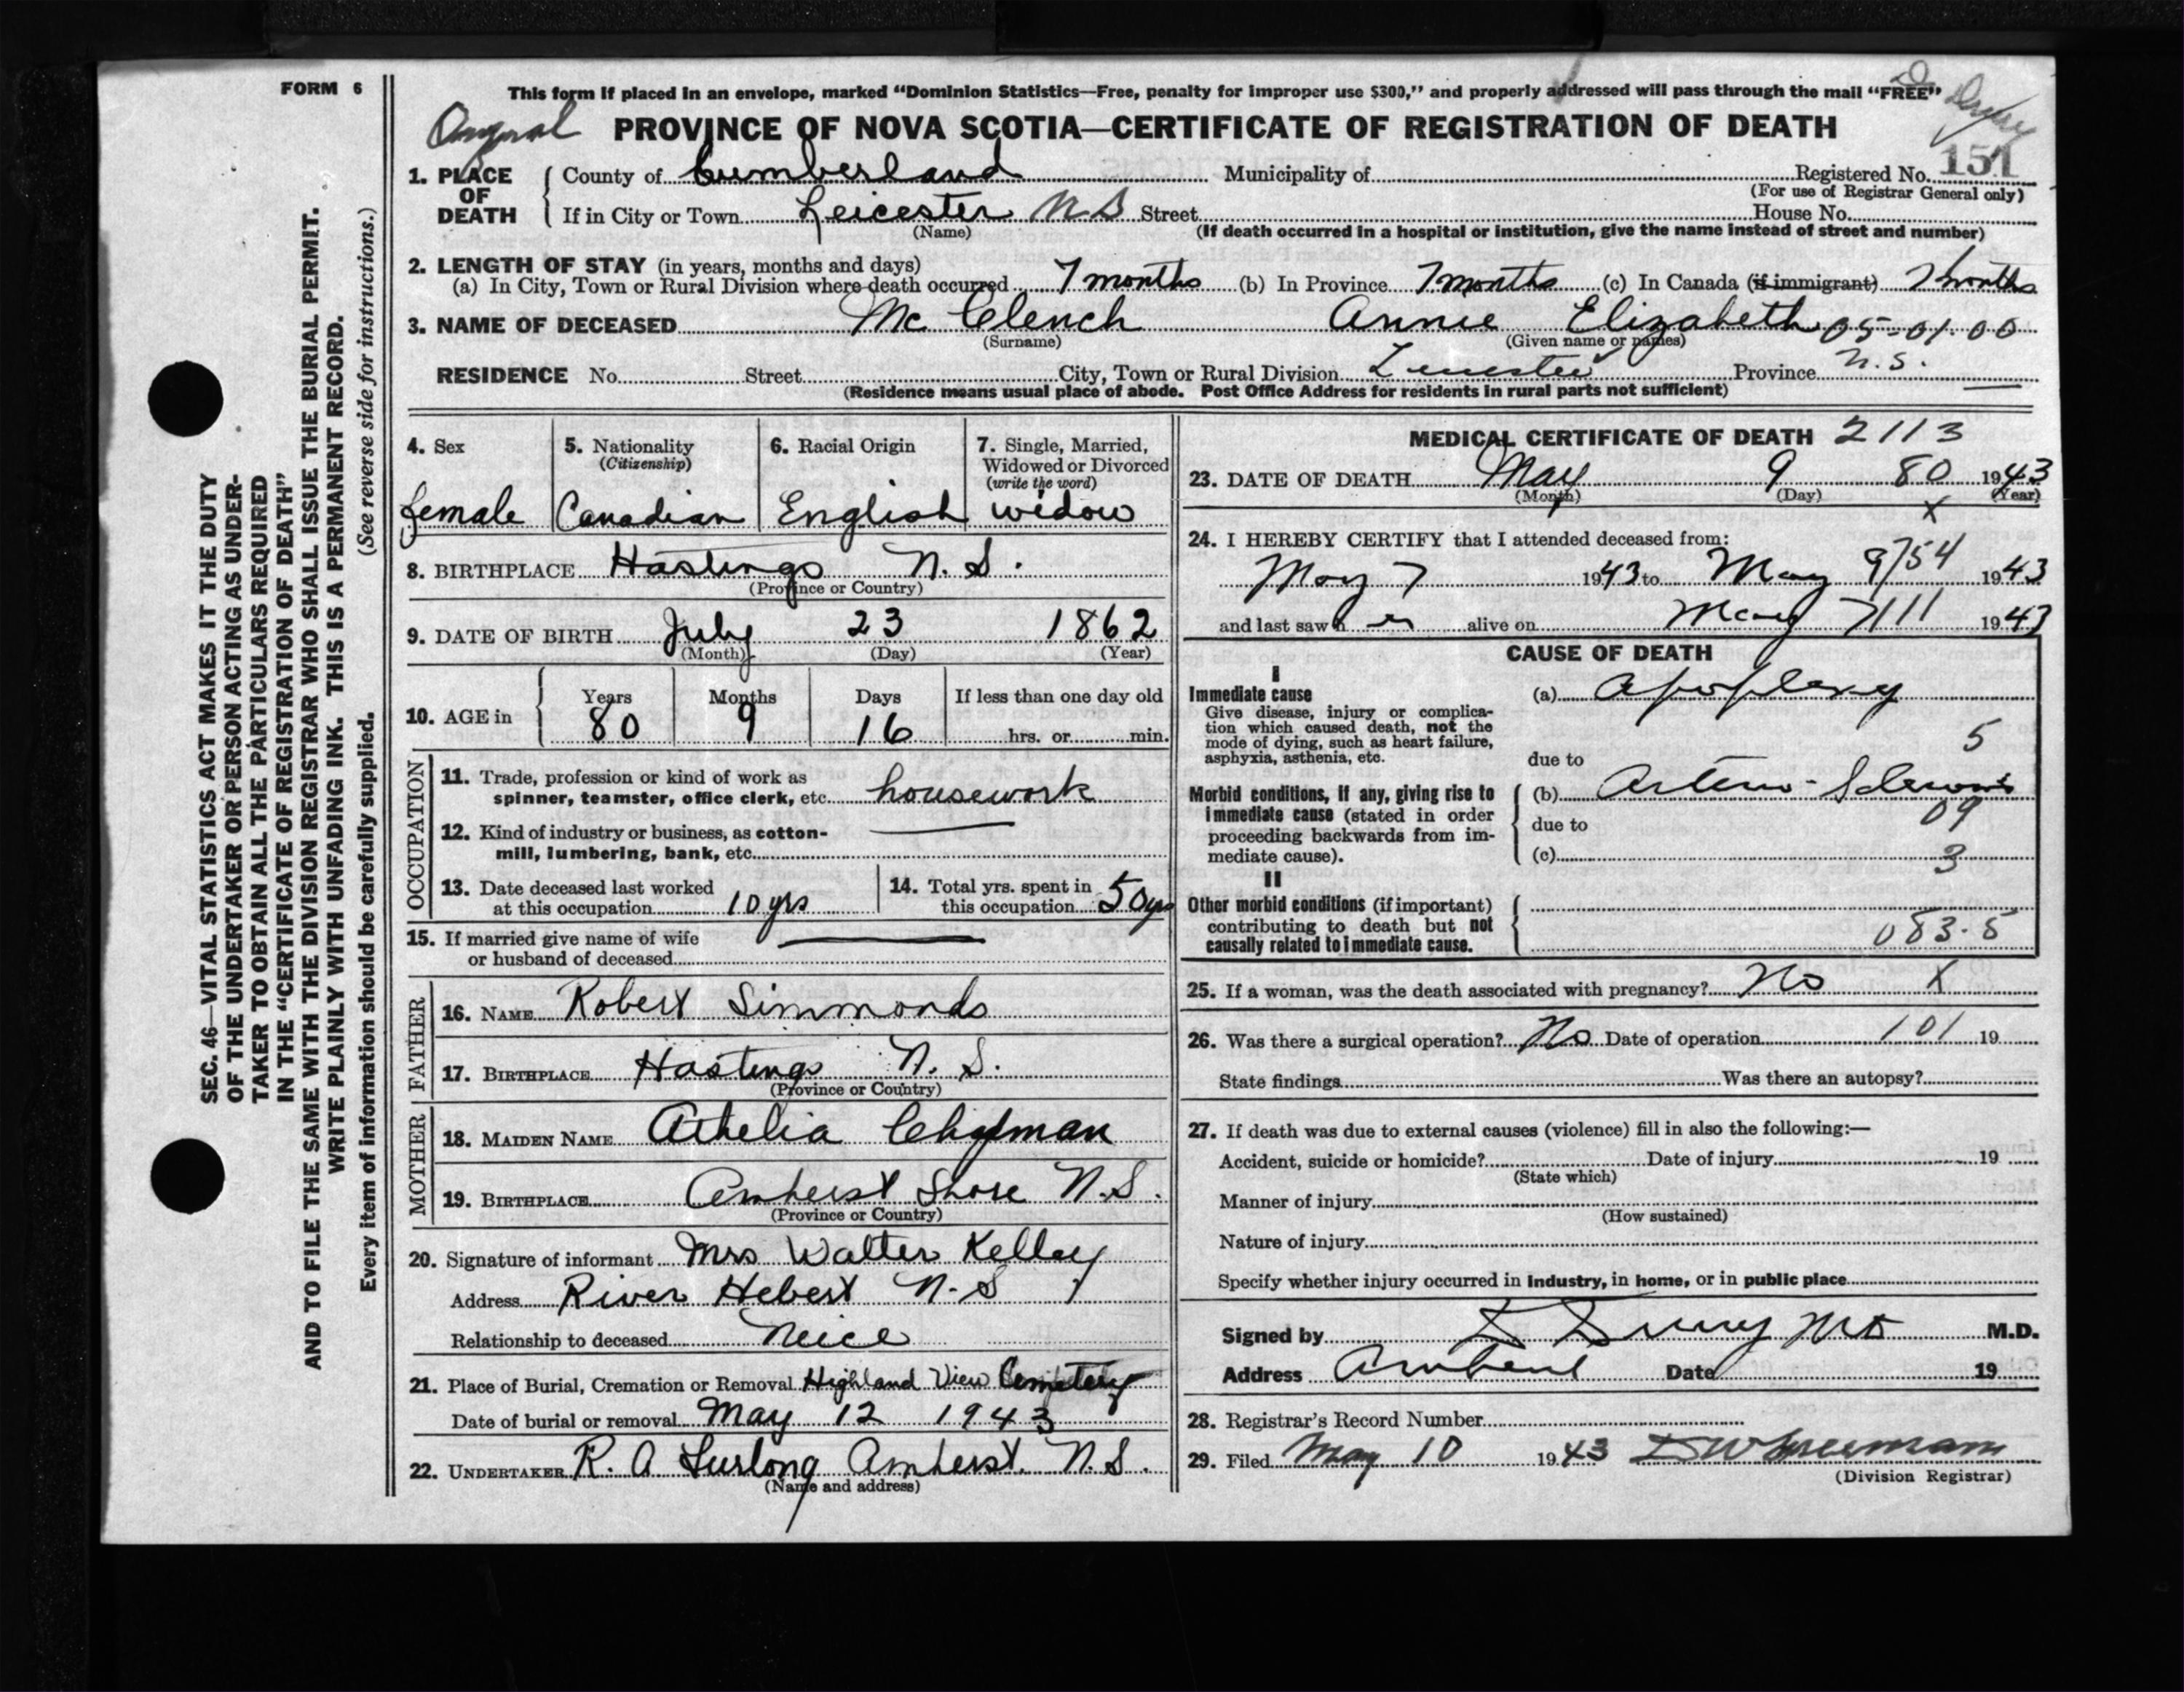 FORM 6
This form if placed in an envelope, marked “Dominion Statistics—Free, penalty for improper use $300,” and properly addressed will pass through the mail “FREE”
PROVINCE OF NOVA SCOTIA—CERTIFICATE OF REGISTRATION OF DEATH
1. PLACE OF DEATH
County of Cumberland Municipality of Registered No. 151
(For use of Registrar General only)
If in City or Town Leicester N S Street House No.
(Name) (If death occurred in a hospital or institution, give the name instead of street and number)
2. LENGTH OF STAY (in years, months and days)
(a) In City, Town or Rural Division where death occurred 7 months (b) In Province 7 months (c) In Canada (if immigrant) 7 months
3. NAME OF DECEASED Mc Clench Annie Elizabeth 05-01-00
(Surname) (Given name or names)
RESIDENCE No. Street City, Town or Rural Division Leicester Province N.S.
(Residence means usual place of abode. Post Office Address for residents in rural parts not sufficient)
4. Sex
female
5. Nationality
(Citizenship)
Canadian
6. Racial Origin
English
7. Single, Married,
Widowed or Divorced
(write the word)
widow
8. BIRTHPLACE Hastings N. S.
(Province or Country)
9. DATE OF BIRTH July 23 1862
(Month) (Day) (Year)
10. AGE in
Years Months Days If less than one day old
80 9 16 hrs. or min.
OCCUPATION
11. Trade, profession or kind of work as
spinner, teamster, office clerk, etc. housework
12. Kind of industry or business, as cotton-
mill, lumbering, bank, etc.
13. Date deceased last worked
at this occupation 10 yrs
14. Total yrs. spent in
this occupation 50 yrs
15. If married give name of wife
or husband of deceased
FATHER
16. NAME Robert Simmonds
17. BIRTHPLACE Hastings N. S.
(Province or Country)
MOTHER
18. MAIDEN NAME Athelia Chapman
19. BIRTHPLACE Amherst Shore N.S.
(Province or Country)
20. Signature of informant Mrs Walter Kelley
Address River Hebert N-S
Relationship to deceased Neice
21. Place of Burial, Cremation or Removal Highland View Cemetery
Date of burial or removal May 12 1943
22. UNDERTAKER R. A Furlong Amherst. N. S.
(Name and address)
MEDICAL CERTIFICATE OF DEATH 2113
23. DATE OF DEATH May 9 80 1943
(Month) (Day) (Year)
X
24. I HEREBY CERTIFY that I attended deceased from:
May 7 1943 to May 9 754 1943
and last saw h er alive on May 7 111 1943
CAUSE OF DEATH
I
Immediate cause
Give disease, injury or complica-
tion which caused death, not the
mode of dying, such as heart failure,
asphyxia, asthenia, etc.
(a) Apoplexy
5
due to
Morbid conditions, if any, giving rise to
immediate cause (stated in order
proceeding backwards from im-
mediate cause).
(b) Arterio-Sclerosis
09
due to
(c) 3
II
Other morbid conditions (if important)
contributing to death but not
causally related to immediate cause.
083.5
25. If a woman, was the death associated with pregnancy? No X
26. Was there a surgical operation? No Date of operation 101 19
State findings Was there an autopsy?
27. If death was due to external causes (violence) fill in also the following:—
Accident, suicide or homicide? Date of injury 19
(State which)
Manner of injury
(How sustained)
Nature of injury
Specify whether injury occurred in industry, in home, or in public place
Signed by MD M.D.
Address Amherst Date 19
28. Registrar's Record Number
29. Filed May 10 1943
(Division Registrar)
SEC. 46—VITAL STATISTICS ACT MAKES IT THE DUTY
OF THE UNDERTAKER OR PERSON ACTING AS UNDER-
TAKER TO OBTAIN ALL THE PARTICULARS REQUIRED
IN THE “CERTIFICATE OF REGISTRATION OF DEATH”
AND TO FILE THE SAME WITH THE DIVISION REGISTRAR WHO SHALL ISSUE THE BURIAL PERMIT.
WRITE PLAINLY WITH UNFADING INK. THIS IS A PERMANENT RECORD.
Every item of information should be carefully supplied. (See reverse side for instructions.)